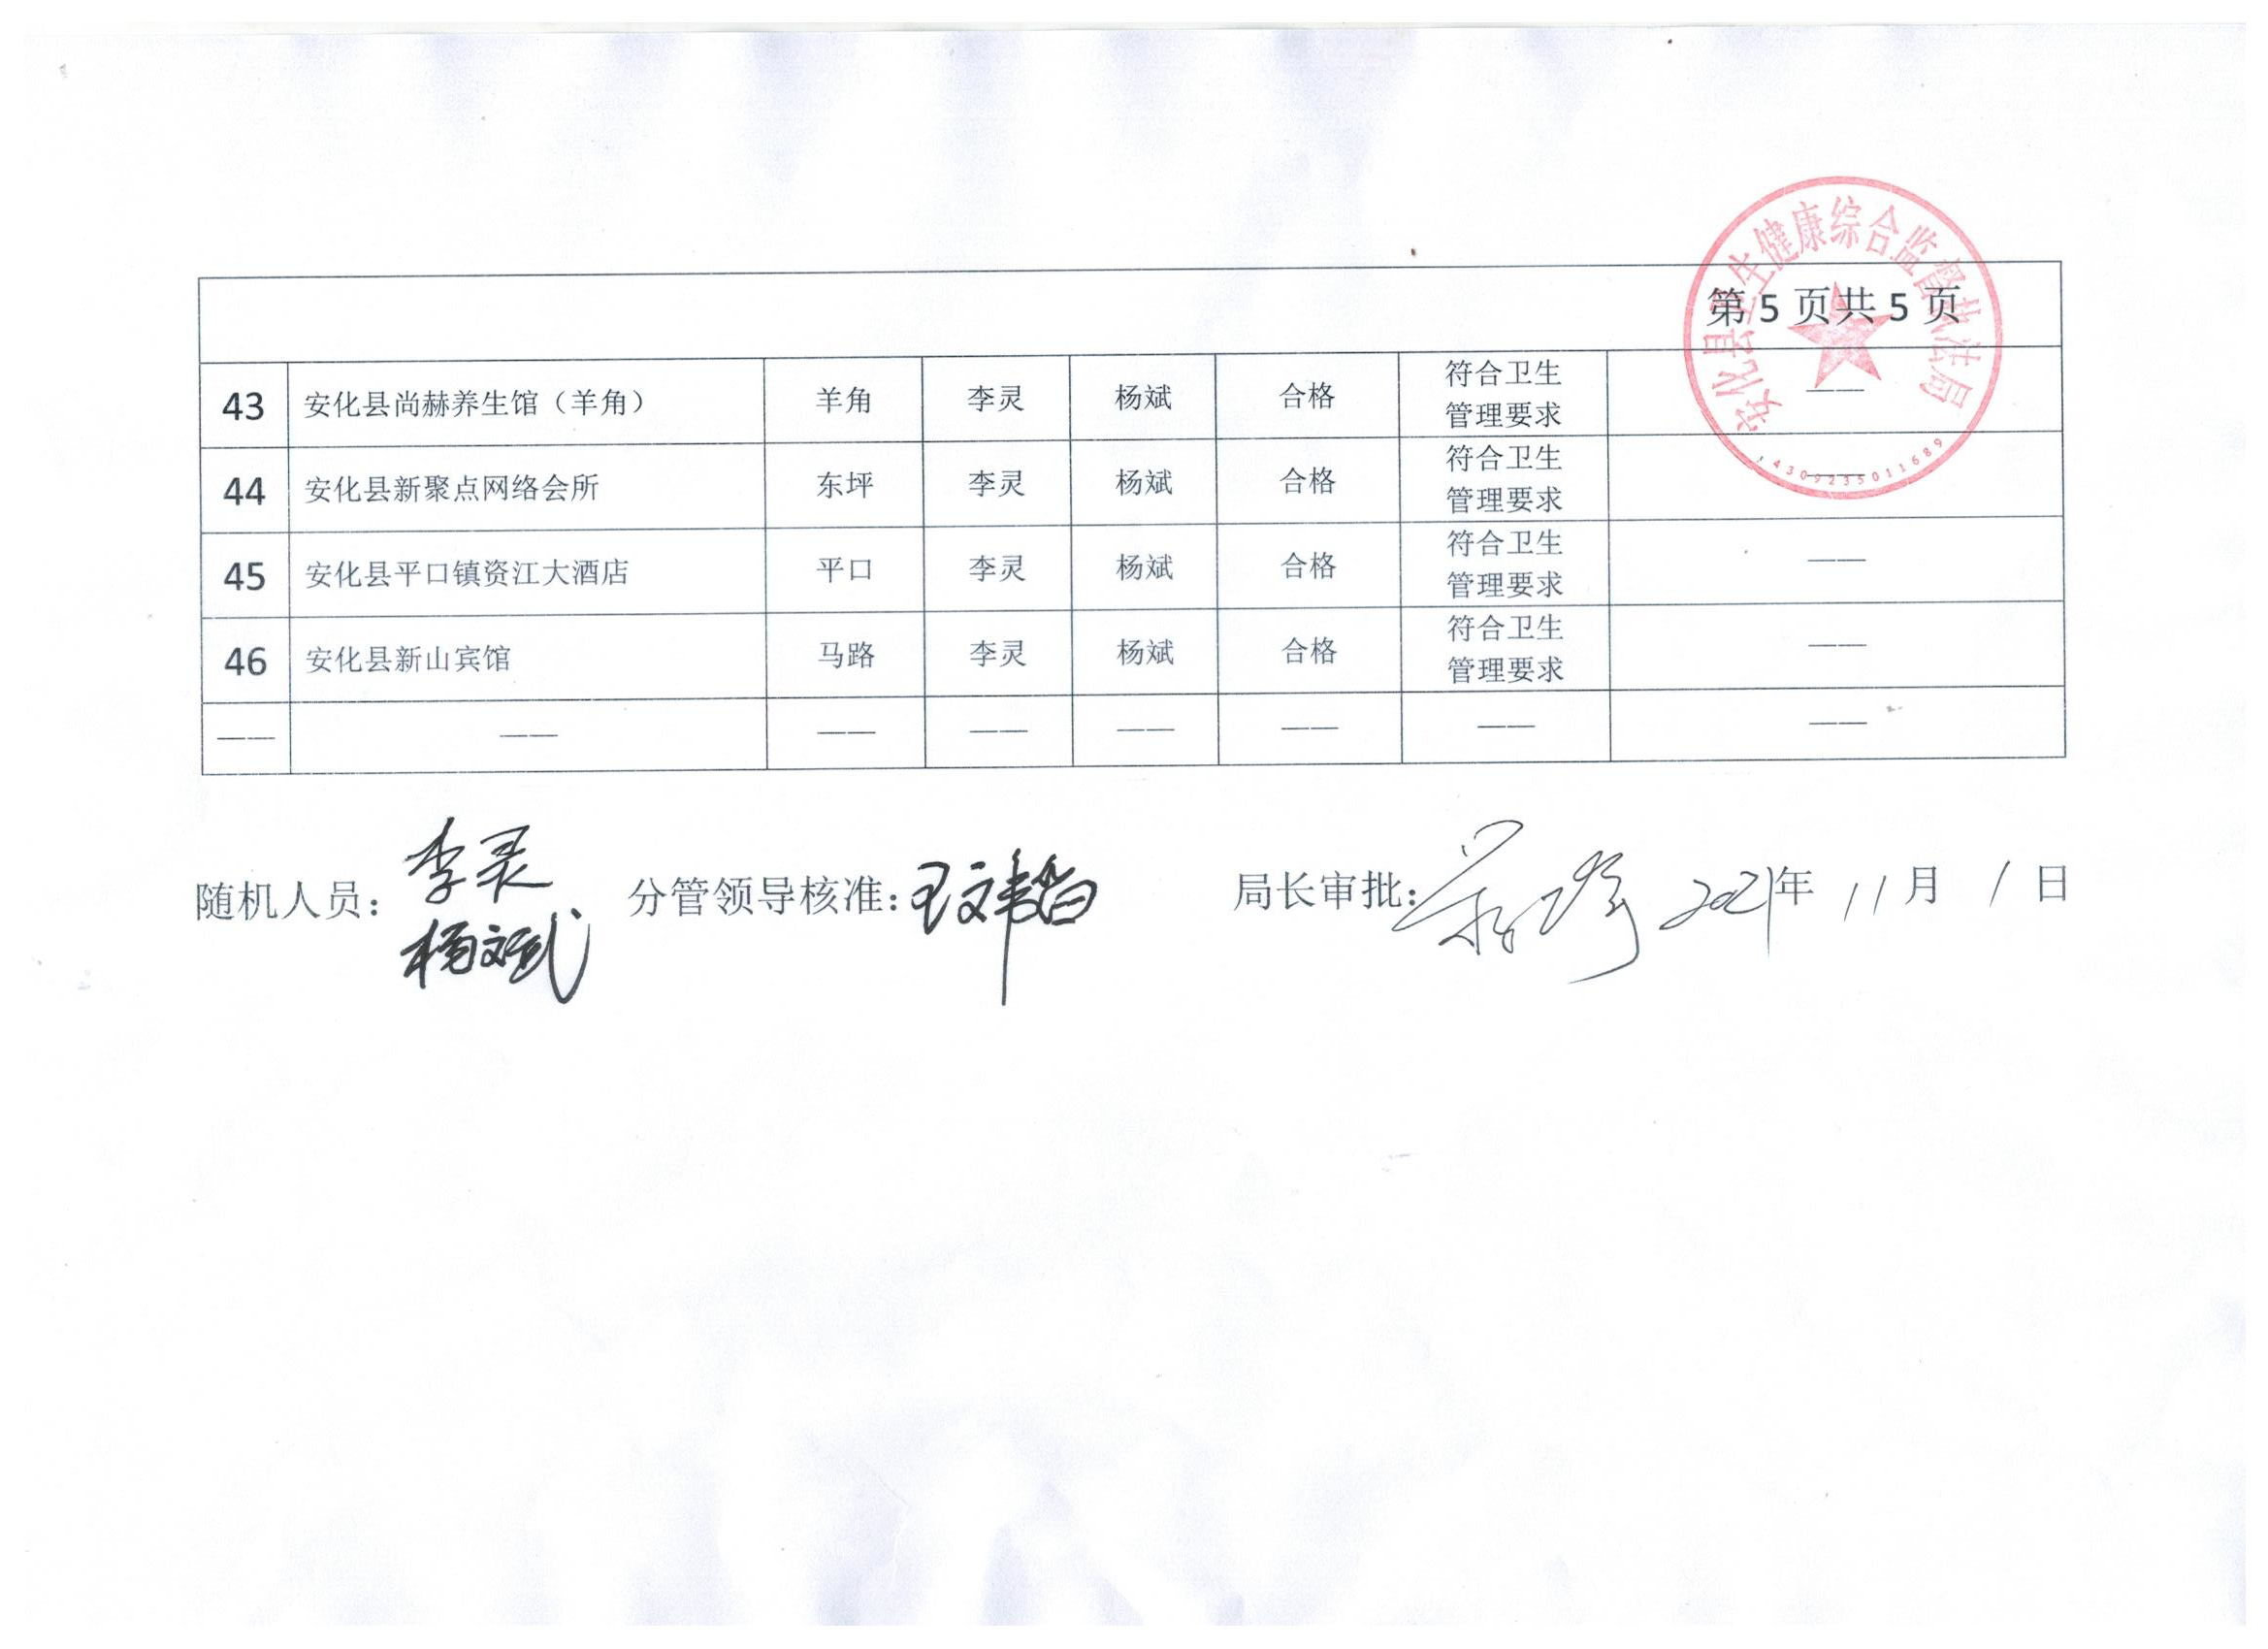 安化县卫生健康综合监督执法局
第 5 页共 5 页
43 安化县尚赫养生馆（羊角） 羊角 李灵 杨斌 合格 符合卫生管理要求 ——
44 安化县新聚点网络会所 东坪 李灵 杨斌 合格 符合卫生管理要求 ——
45 安化县平口镇资江大酒店 平口 李灵 杨斌 合格 符合卫生管理要求 ——
46 安化县新山宾馆 马路 李灵 杨斌 合格 符合卫生管理要求 ——
—— —— —— —— —— —— —— ——
4309235011689
随机人员：李灵 杨斌 分管领导核准： 局长审批： 2021年 11月 1日